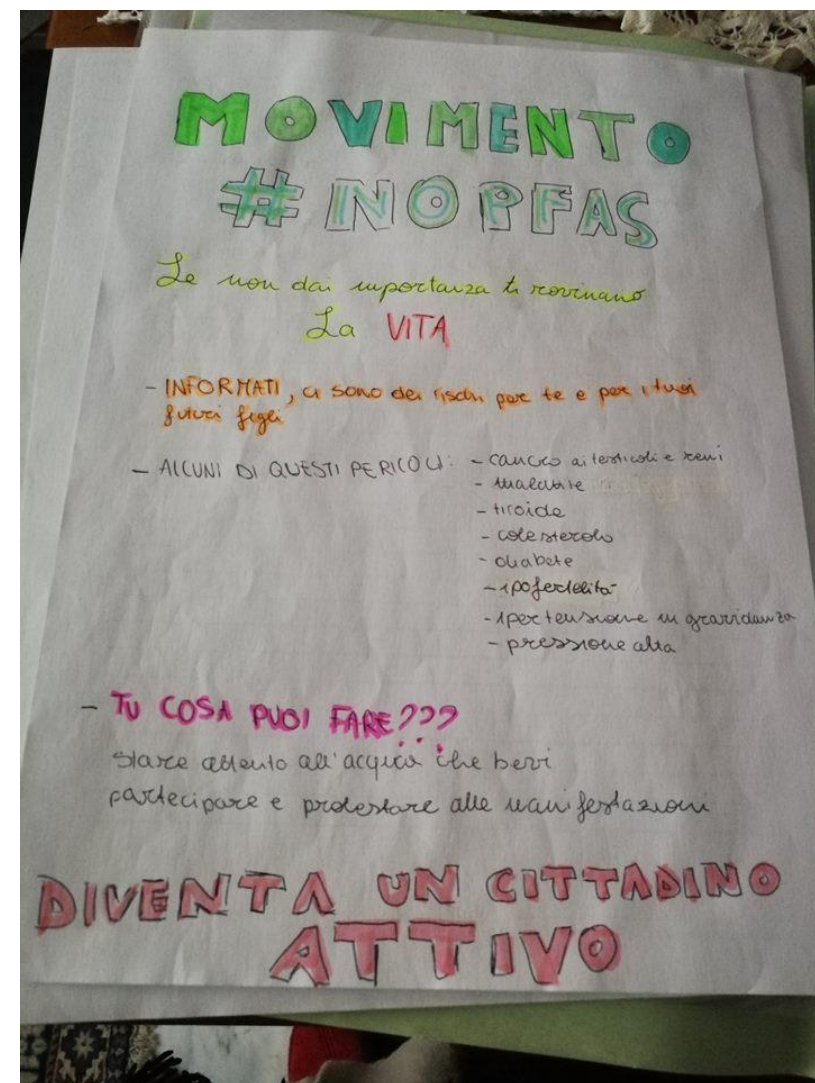 MOVIMENTO
# NOPFAS
Se non dai importanza ti rovinano
La VITA
- INFORMATI, ci sono dei rischi per te e per i tuoi
futuri figli
- ALCUNI DI QUESTI PERICOLI: - cancro ai testicoli e reni
- malattie
- tiroide
- colesterolo
- diabete
- ipofertilità
- ipertensione in gravidanza
- pressione alta
- TU COSA PUOI FARE???
Stare attento all'acqua che bevi
partecipare e protestare alle manifestazioni
DIVENTA UN CITTADINO
ATTIVO